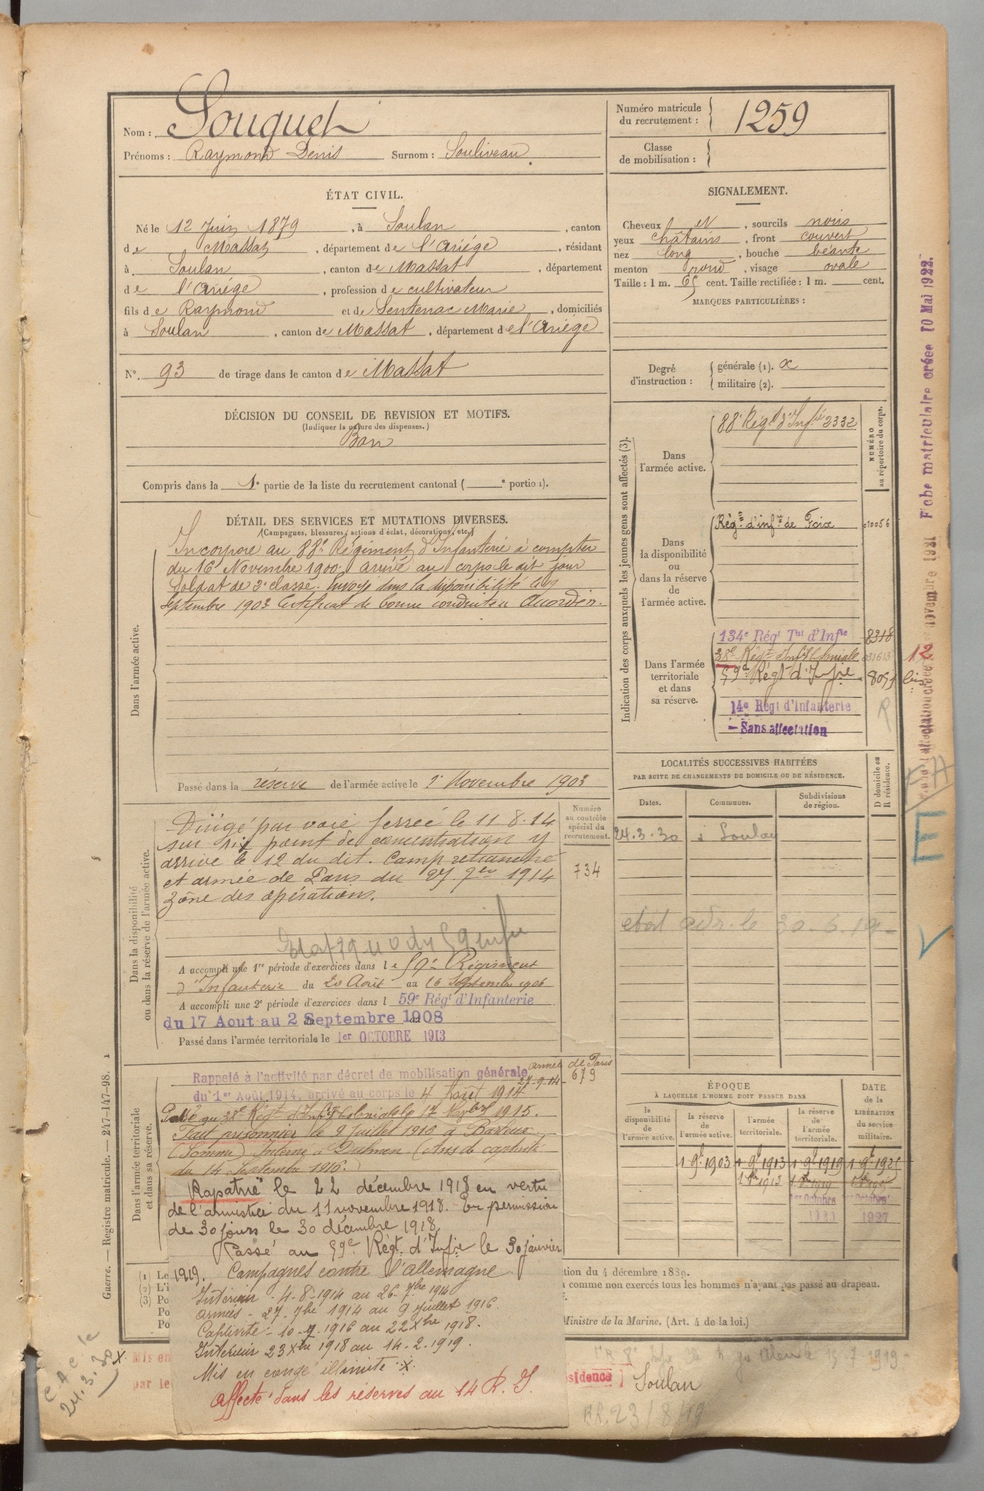 Nom : Souquet
Prénoms : Raymond Denis Surnom : Souliveau.
Numéro matricule du recrutement : 1259
Classe de mobilisation :
ÉTAT CIVIL.
Né le 12 Juin 1879, à Soulan, canton
de Massat, département de l'Ariège, résidant
à Soulan, canton de Massat, département
de l'Ariège, profession de cultivateur
fils de Raymond et de Sentenac Marie, domiciliés
à Soulan, canton de Massat, département de l'Ariège
N°. 93 de tirage dans le canton de Massat
SIGNALEMENT.
Cheveux et sourcils noirs
yeux châtains, front couvert
nez long, bouche béante
menton rond, visage ovale
Taille : 1 m. 65 cent. Taille rectifiée : 1 m. cent.
MARQUES PARTICULIÈRES :
Degré d'instruction :
générale (1). x
militaire (2).
DÉCISION DU CONSEIL DE REVISION ET MOTIFS.
(Indiquer la nature des dispenses.)
Bon
Compris dans la 1e partie de la liste du recrutement cantonal ( e portion).
DÉTAIL DES SERVICES ET MUTATIONS DIVERSES.
(Campagnes, blessures, actions d'éclat, décorations, etc.)
Dans l'armée active.
Incorporé au 88e Régiment d'Infanterie à compter
du 16 Novembre 1900, arrivé au corps le dit jour
Soldat de 2e classe. Envoyé dans la disponibilité le
Septembre 1903 Certificat de bonne conduite Accordé.
Passé dans la réserve de l'armée active le 1er Novembre 1903
Dans la disponibilité ou dans la réserve de l'armée active.
Dirigé par voie ferrée le 11.8.14
sur point de concentration y
arrivé le 12 du dit. Camp retranché
et armée de Paris du 27 7bre 1914
zône des opérations.
A accompli une 1re période d'exercices dans le 59e Régiment
d'Infanterie du 20 Août au 16 Septembre 1906
A accompli une 2e période d'exercices dans l 59e Régt d'Infanterie
du 17 Aout au 2 Septembre 1908
Passé dans l'armée territoriale le 1er OCTOBRE 1913
Numéro au contrôle spécial du recrutement.
734
Dans l'armée territoriale et dans sa réserve.
Rappelé à l'activité par décret de mobilisation générale
du 1er Août 1914, arrivé au corps le 4 Août 1914
armée de Paris
27-9-14 -
679
Passé au 38e Régt d'Inf Coloniale le 12 9bre 1915.
Fait prisonnier le 9 Juillet 1916 à Barleux
(Somme) Interné à Dulmen (
du 14 Septembre 1916.)
"Rapatrié" le 22 décembre 1918 en vertu
de l'armistice du 11 novembre 1918. En permission
de 30 jours le 30 décembre 1918
Passé au 59e Régt. d'Infie le 30 janvier
1919. Campagnes contre l'Allemagne
Intérieur - 4-8-1914 au 26-7bre 1914
Armées - 27-7bre 1914 au 9 juillet 1916
Captivité - 10-7-1916 au 22 Xbre 1918.
Intérieur 23 Xbre 1918 au 14-2-1919.
Mis en congé illimité.
Affecté dans les réserves au 14 R. I.
Indication des corps auxquels les jeunes gens sont affectés (3).
NUMÉRO au répertoire du corps.
Dans l'armée active.
88e Régt d'Infie 3332
Dans la disponibilité ou dans la réserve de l'armée active.
Régt d'infie de Foix 010056
Dans l'armée territoriale et dans sa réserve.
134e Régt Tal d'Infie 8318
38e Régt d'Inf Coloniale
59e Régt d'Infie
14e Régt d'Infanterie
- Sans affectation
LOCALITÉS SUCCESSIVES HABITÉES
PAR SUITE DE CHANGEMENTS DE DOMICILE OU DE RÉSIDENCE.
Dates. Communes. Subdivisions de région. D domicile ou R résidence.
24.3.30 à Soulan
ÉPOQUE
À LAQUELLE L'HOMME DOIT PASSER DANS
DATE de la LIBÉRATION du service militaire.
la disponibilité de l'armée active.
la réserve de l'armée active.
l'armée territoriale.
la réserve de l'armée territoriale.
1 9b 1903 1 9b 1913 1 9b 1919
Guerre. — Registre matricule. — 247-147-98.
tion du 4 décembre 1889.
comme non exercés tous les hommes n'ayant pas passé au drapeau.
Ministre de la Marine. (Art. 4 de la loi.)
Mis en
par le
sidence
Soulan
23/8/19
C A C le
24.3.30
Fiche matriculaire créée 10 Mai 1922.